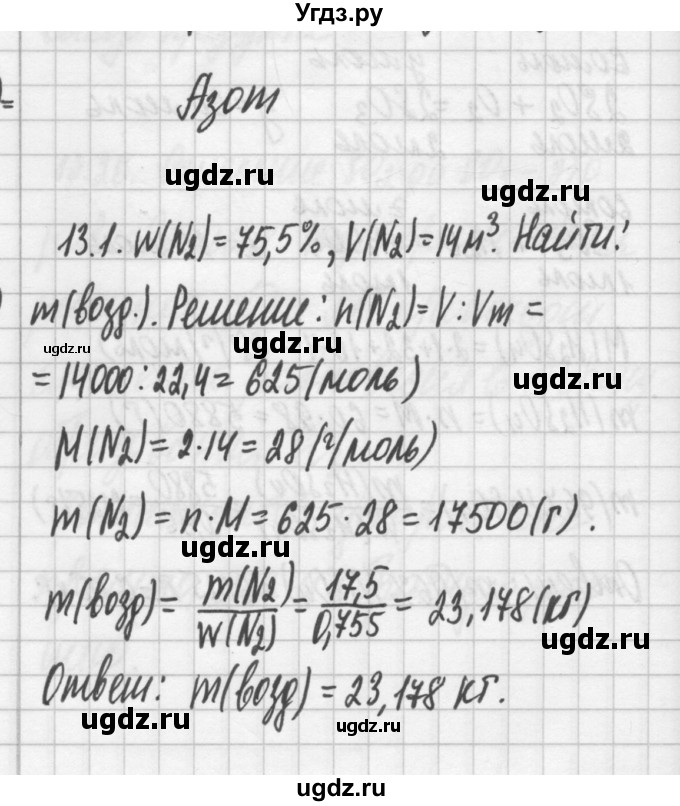 Угдз.ру
Азот
ugdz.ru
13.1. w(N₂) = 75,5%, V(N₂) = 14 м³. Найти:
m(возд.). Решение: n(N₂) = V : Vm =
ugdz.ru
ugdz.ru
= 14000 : 22,4 = 625 (моль)
ugdz.ru
M(N₂) = 2·14 = 28 (г/моль)
m(N₂) = n·M = 625·28 = 17500 (г).
ugdz.ru
m(возд) = m(N₂)/w(N₂) = 17,5/0,755 = 23,178 (кг)
ugdz.ru
Ответ: m(возд) = 23,178 кг.
ugdz.ru
ugdz.ru
ugdz.ru